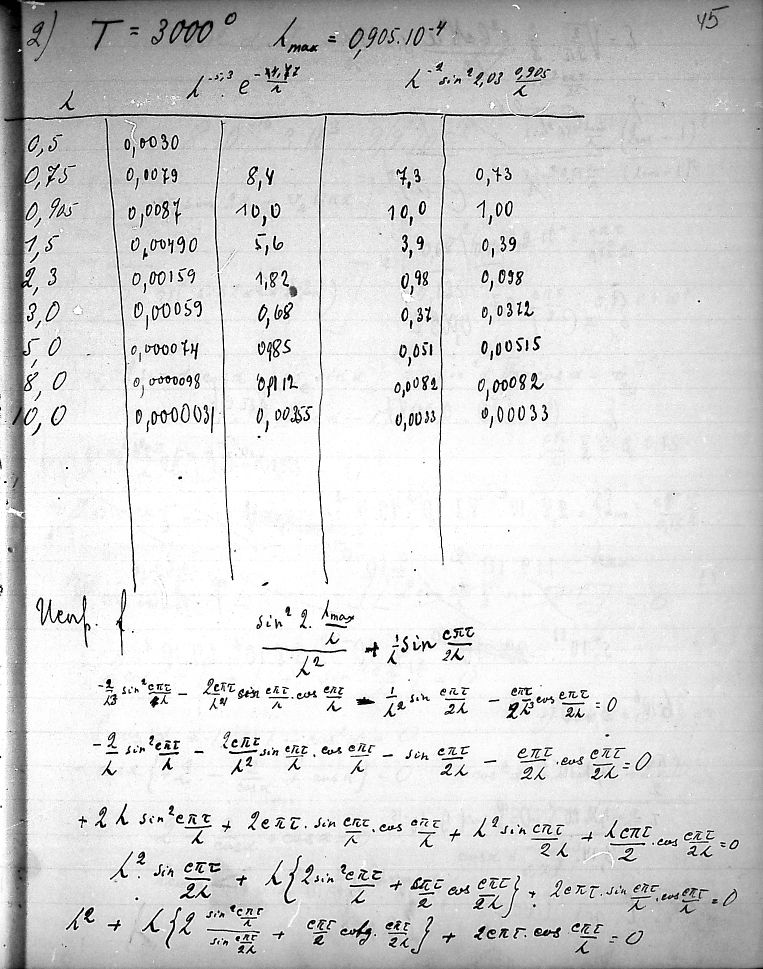 45
2) T = 3000° λmax = 0,905.10⁻⁴
λ λ^-5,3 e^- λ⁻² sin² 2,03 0,905/λ
0,5 0,0030
0,75 0,0079 8,4 7,3 0,73
0,905 0,0087 10,0 10,0 1,00
1,5 0,00490 5,6 3,9 0,39
2,3 0,00159 1,82 0,98 0,098
3,0 0,00059 0,68 0,37 0,0372
5,0 0,000074 0,085 0,051 0,00515
8,0 0,0000098 0,0112 0,0082 0,00082
10,0 0,0000031 0,00355 0,0033 0,00033
Испр. f. sin² 2. λmax/λ / λ² + 1/λ sin cπτ/2λ
-2/λ3 sin² cπτ/λ - 2cπτ/λ4 sin cπτ/λ . cos cπτ/λ - 1/λ² sin cπτ/2λ - cπτ/2λ3 cos cπτ/2λ = 0
-2/λ sin² cπτ/λ - 2cπτ/λ² sin cπτ/λ . cos cπτ/λ - sin cπτ/2λ - cπτ/2λ . cos cπτ/2λ = 0
+ 2λ sin² cπτ/λ + 2cπτ . sin cπτ/λ . cos cπτ/λ + λ² sin cπτ/2λ + λcπτ/2 . cos cπτ/2λ = 0
λ² . sin cπτ/2λ + λ{2 sin² cπτ/λ + cπτ/2 cos cπτ/2λ} + 2cπτ . sin cπτ/λ . cos cπτ/λ = 0
λ² + λ{2 sin² cπτ/λ / sin cπτ/2λ + cπτ/2 cotg. cπτ/2λ} + 2cπτ . cos cπτ/λ = 0